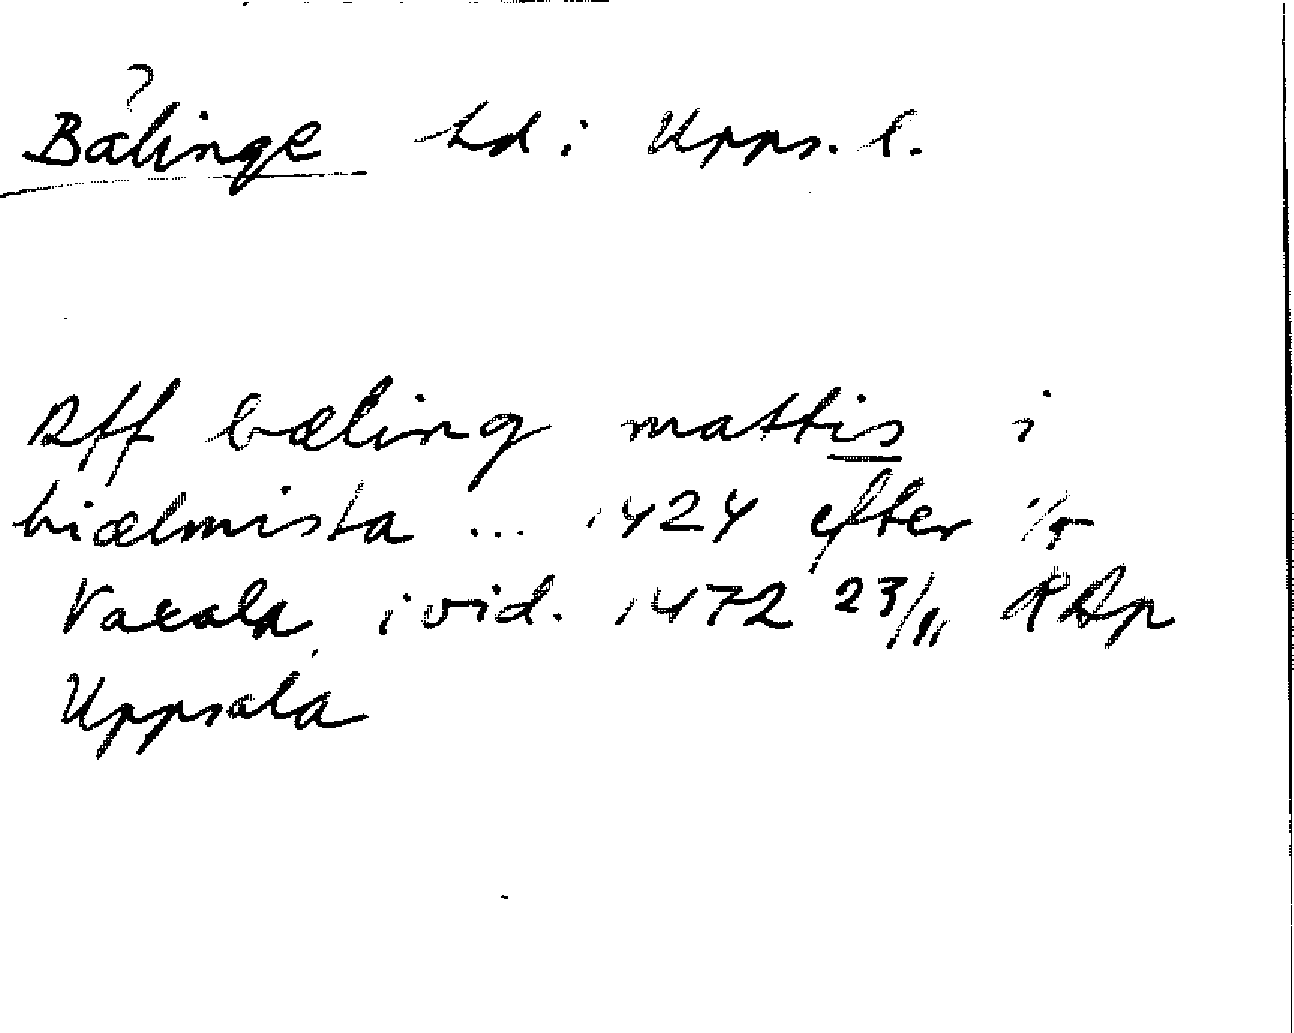 ?
Bälinge hd: Upps. l.
Aff bæling mattis i
hiælmista ... 1424 efter
Vaxala i vid. 1472 23/11 RAp
Uppsala